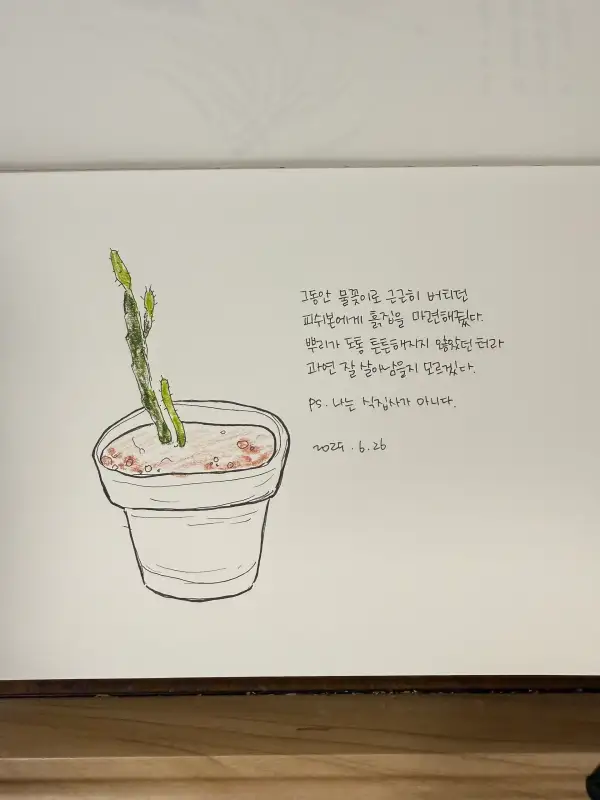 그동안 물꽂이로 근근히 버티던
피쉬본에게 흙집을 마련해줬다.
뿌리가 도통 튼튼해지지 않았던 터라
과연 잘 살아남을지 모르겠다.
ps. 나는 식집사가 아니다.
2025. 6. 26